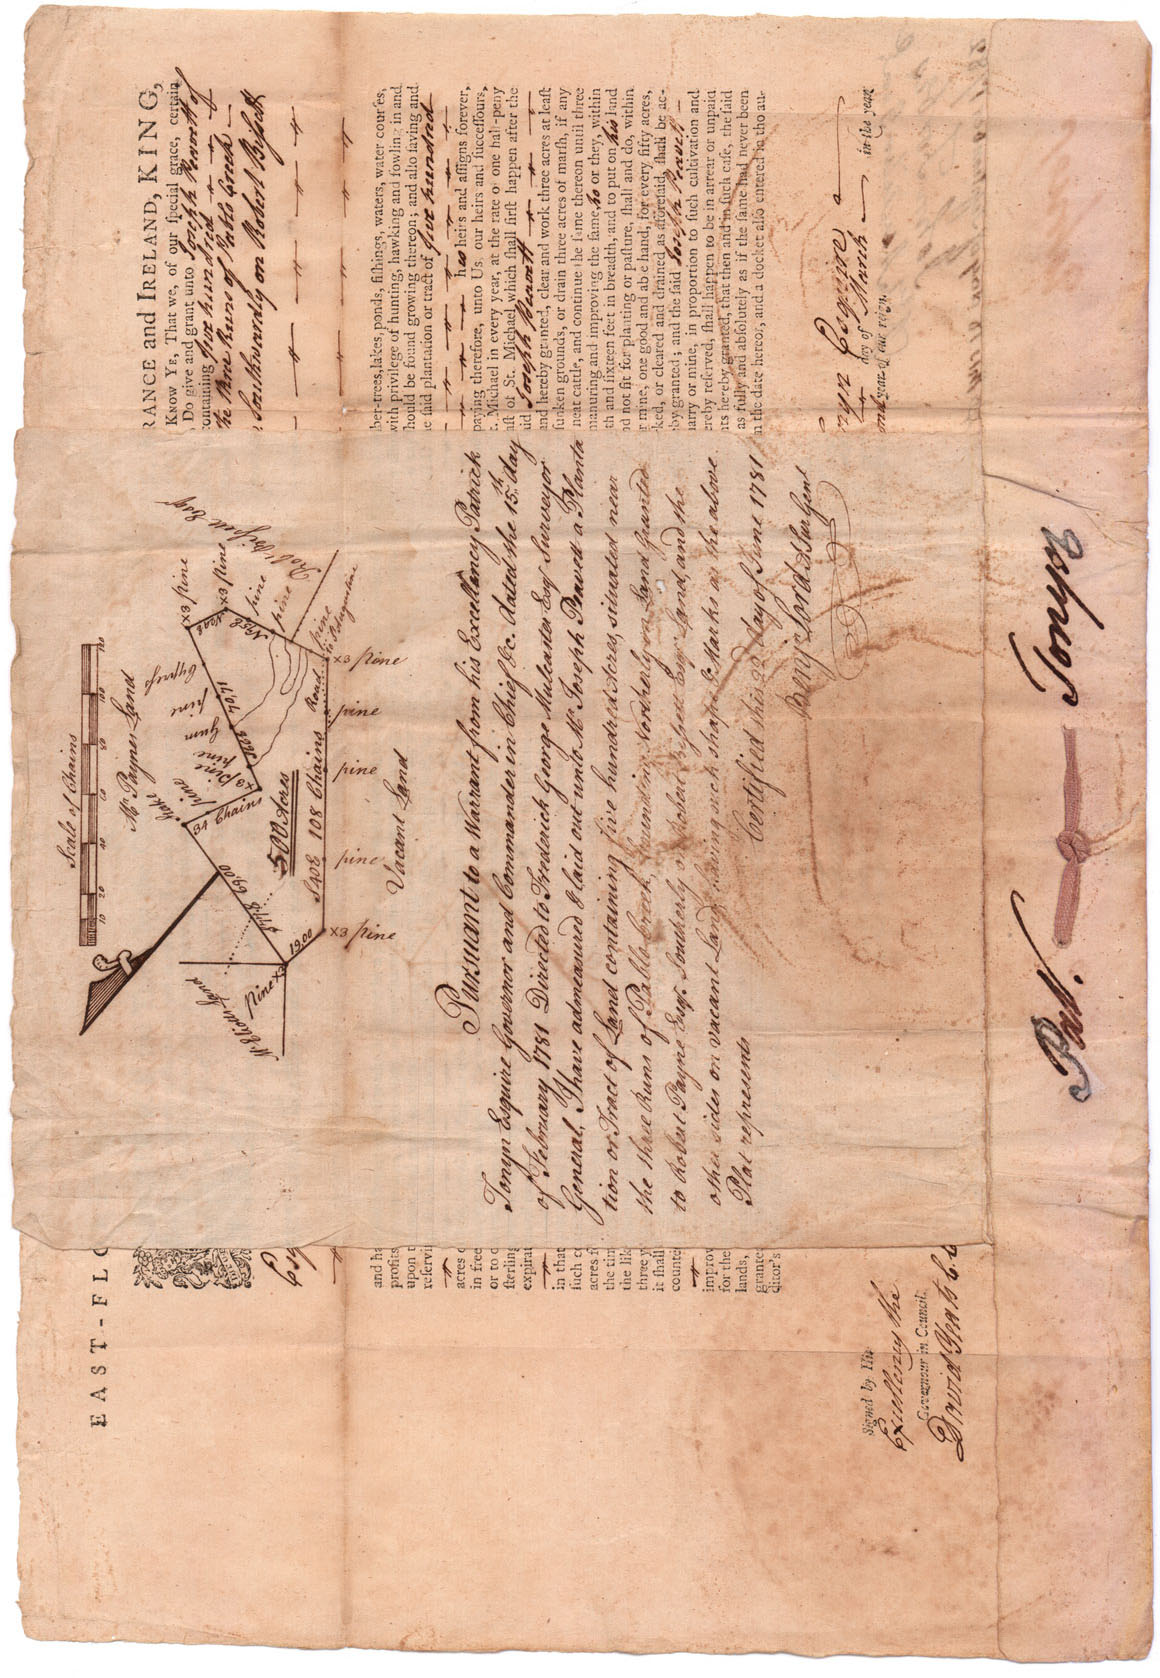 EAST-FLO
RANCE and IRELAND, KING,
KNOW YE, That we, of our ſpecial grace, certain
Do give and grant unto Joseph Peavett of
containing five hundred
the three Runs of Pablo Creek
Southwardly on Robert Bissett
Esq
ber-trees, lakes, ponds, fiſhings, waters, water courſes,
with privilege of hunting, hawking and fowling in and
ſhould be found growing thereon; and alſo ſaving and
ſaid plantation or tract of five hundred
his heirs and aſſigns forever,
paying therefore, unto Us, our heirs and ſucceſſours,
t. Michael in every year, at the rate of one half-peny
aſt of St. Michael which ſhall firſt happen after the
id Joseph Peavett
and hereby granted, clear and work three acres at leaſt
ſunken grounds, or drain three acres of marſh, if any
neat cattle, and continue the ſame thereon until three
manuring and improving the ſame, he or they, within
th and ſixteen feet in breadth, and to put on his land
nd not fit for planting or paſture, ſhall and do, within
r mine, one good and able hand, for every fifty acres,
ked, or cleared and drained as aforeſaid, ſhall be ac-
by granted; and the ſaid Joseph Peavett
uarry or mine, in proportion to ſuch cultivation and
ereby reſerved, ſhall happen to be in arrear or unpaid
ts hereby granted, that then and in ſuch caſe, the ſaid
as fully and abſolutely as if the ſame had never been
m the date hereof, and a docket alſo entered in the au-
and ha
profits
upon t
reſervin
acres o
in free
or to c
ſterling
expirat
in that
ſuch co
acres f
the tim
the lik
three y
it ſhall
counte
improv
for the
lands,
grante
ditor's
onyn Esquire
day of March in the year
year of our reign.
Signed by His
Excellency the
Governour in Council.
David Yeats C. C
Scale of Chains
10 20 40
Mr Paynes Land
Stake
pine
pine
pine
gum
pine
Cypress
x3 pine
x3 pine
pine
pine
Robt Bissett Esqr
pine
to St Augustine
Road
34 Chains
69,00
19.00
500 Acres
S40E 108 Chains
x3 pine
pine
pine
pine
x3 pine
Pine x3
Mr Elliotts Land
Vacant Land
Pursuant to a Warrant from his Excellency Patrick
Tonyn Esquire Governor and Commander in Chief &c. dated the 15th day
of February 1781 Directed to Frederick George Mulcaster Esqr Surveyor
General, I have admeasured & laid out unto Mr Joseph Peavett a Planta
tion or Tract of Land containing five hundred Acres, situated near
the three Runs of Pablo Creek, bounding Northerly on Land granted
to Robert Payne Esqr. Southerly on Robert Bissett Esqr Land, and the
other sides on vacant Land having such shape & Marks as the above
Plat represents
Certified this 22 day of June 1781
Benjn Lord D Sur Genl
Patt. Tonyn